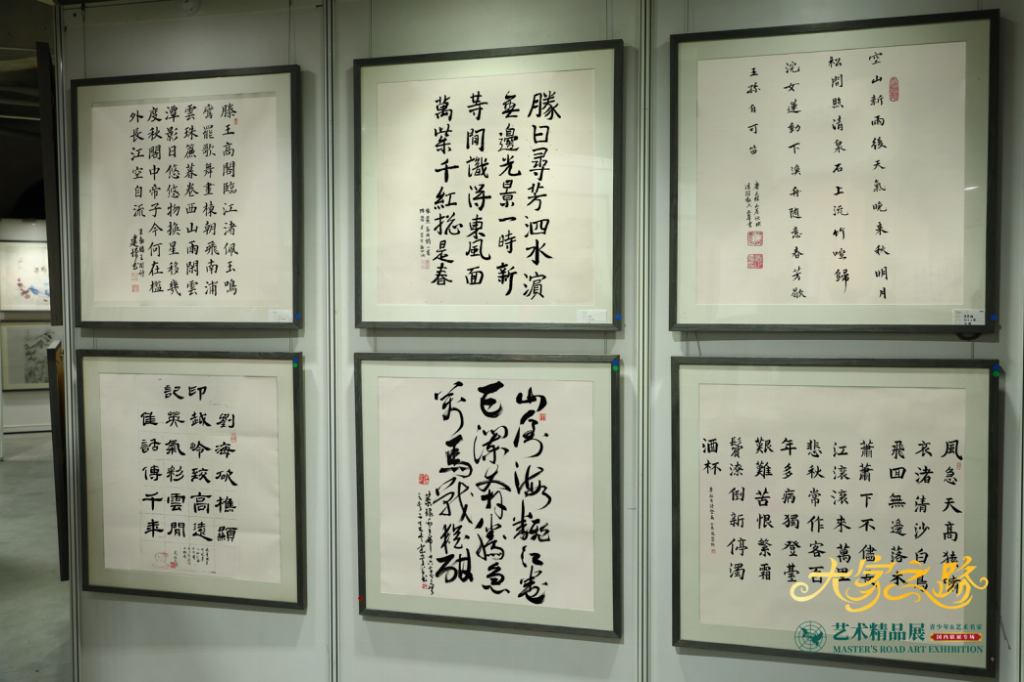 滕王高閣臨江渚佩玉鳴
鸞罷歌舞畫棟朝飛南浦
雲珠簾暮卷西山雨閑雲
潭影日悠悠物換星移幾
度秋閣中帝子今何在檻
外長江空自流
勝日尋芳泗水濱
無邊光景一時新
等間識淂東風面
萬紫千紅摠是春
空山新雨後天氣晚来秋明月
松間照清泉石上流竹喧歸
浣女蓮動下漁舟隨意春芳歇
王孫自可留
劉海砍樵顯
印越吟致高遠
記英氣彩雲間
佳話傳千年
山倒海翻江卷
巨瀾奔騰急
萬馬戰猶酣
風急天高猿嘯
哀渚清沙白鳥
飛回無邊落木
蕭蕭下不儘長
江滾滾来萬里
悲秋常作客百
年多病獨登臺
艱難苦恨繁霜
鬢潦倒新停濁
酒杯
大家之路
艺术精品展
青少年&艺术名家
国内联展专场
MASTER'S ROAD ART EXHIBITION